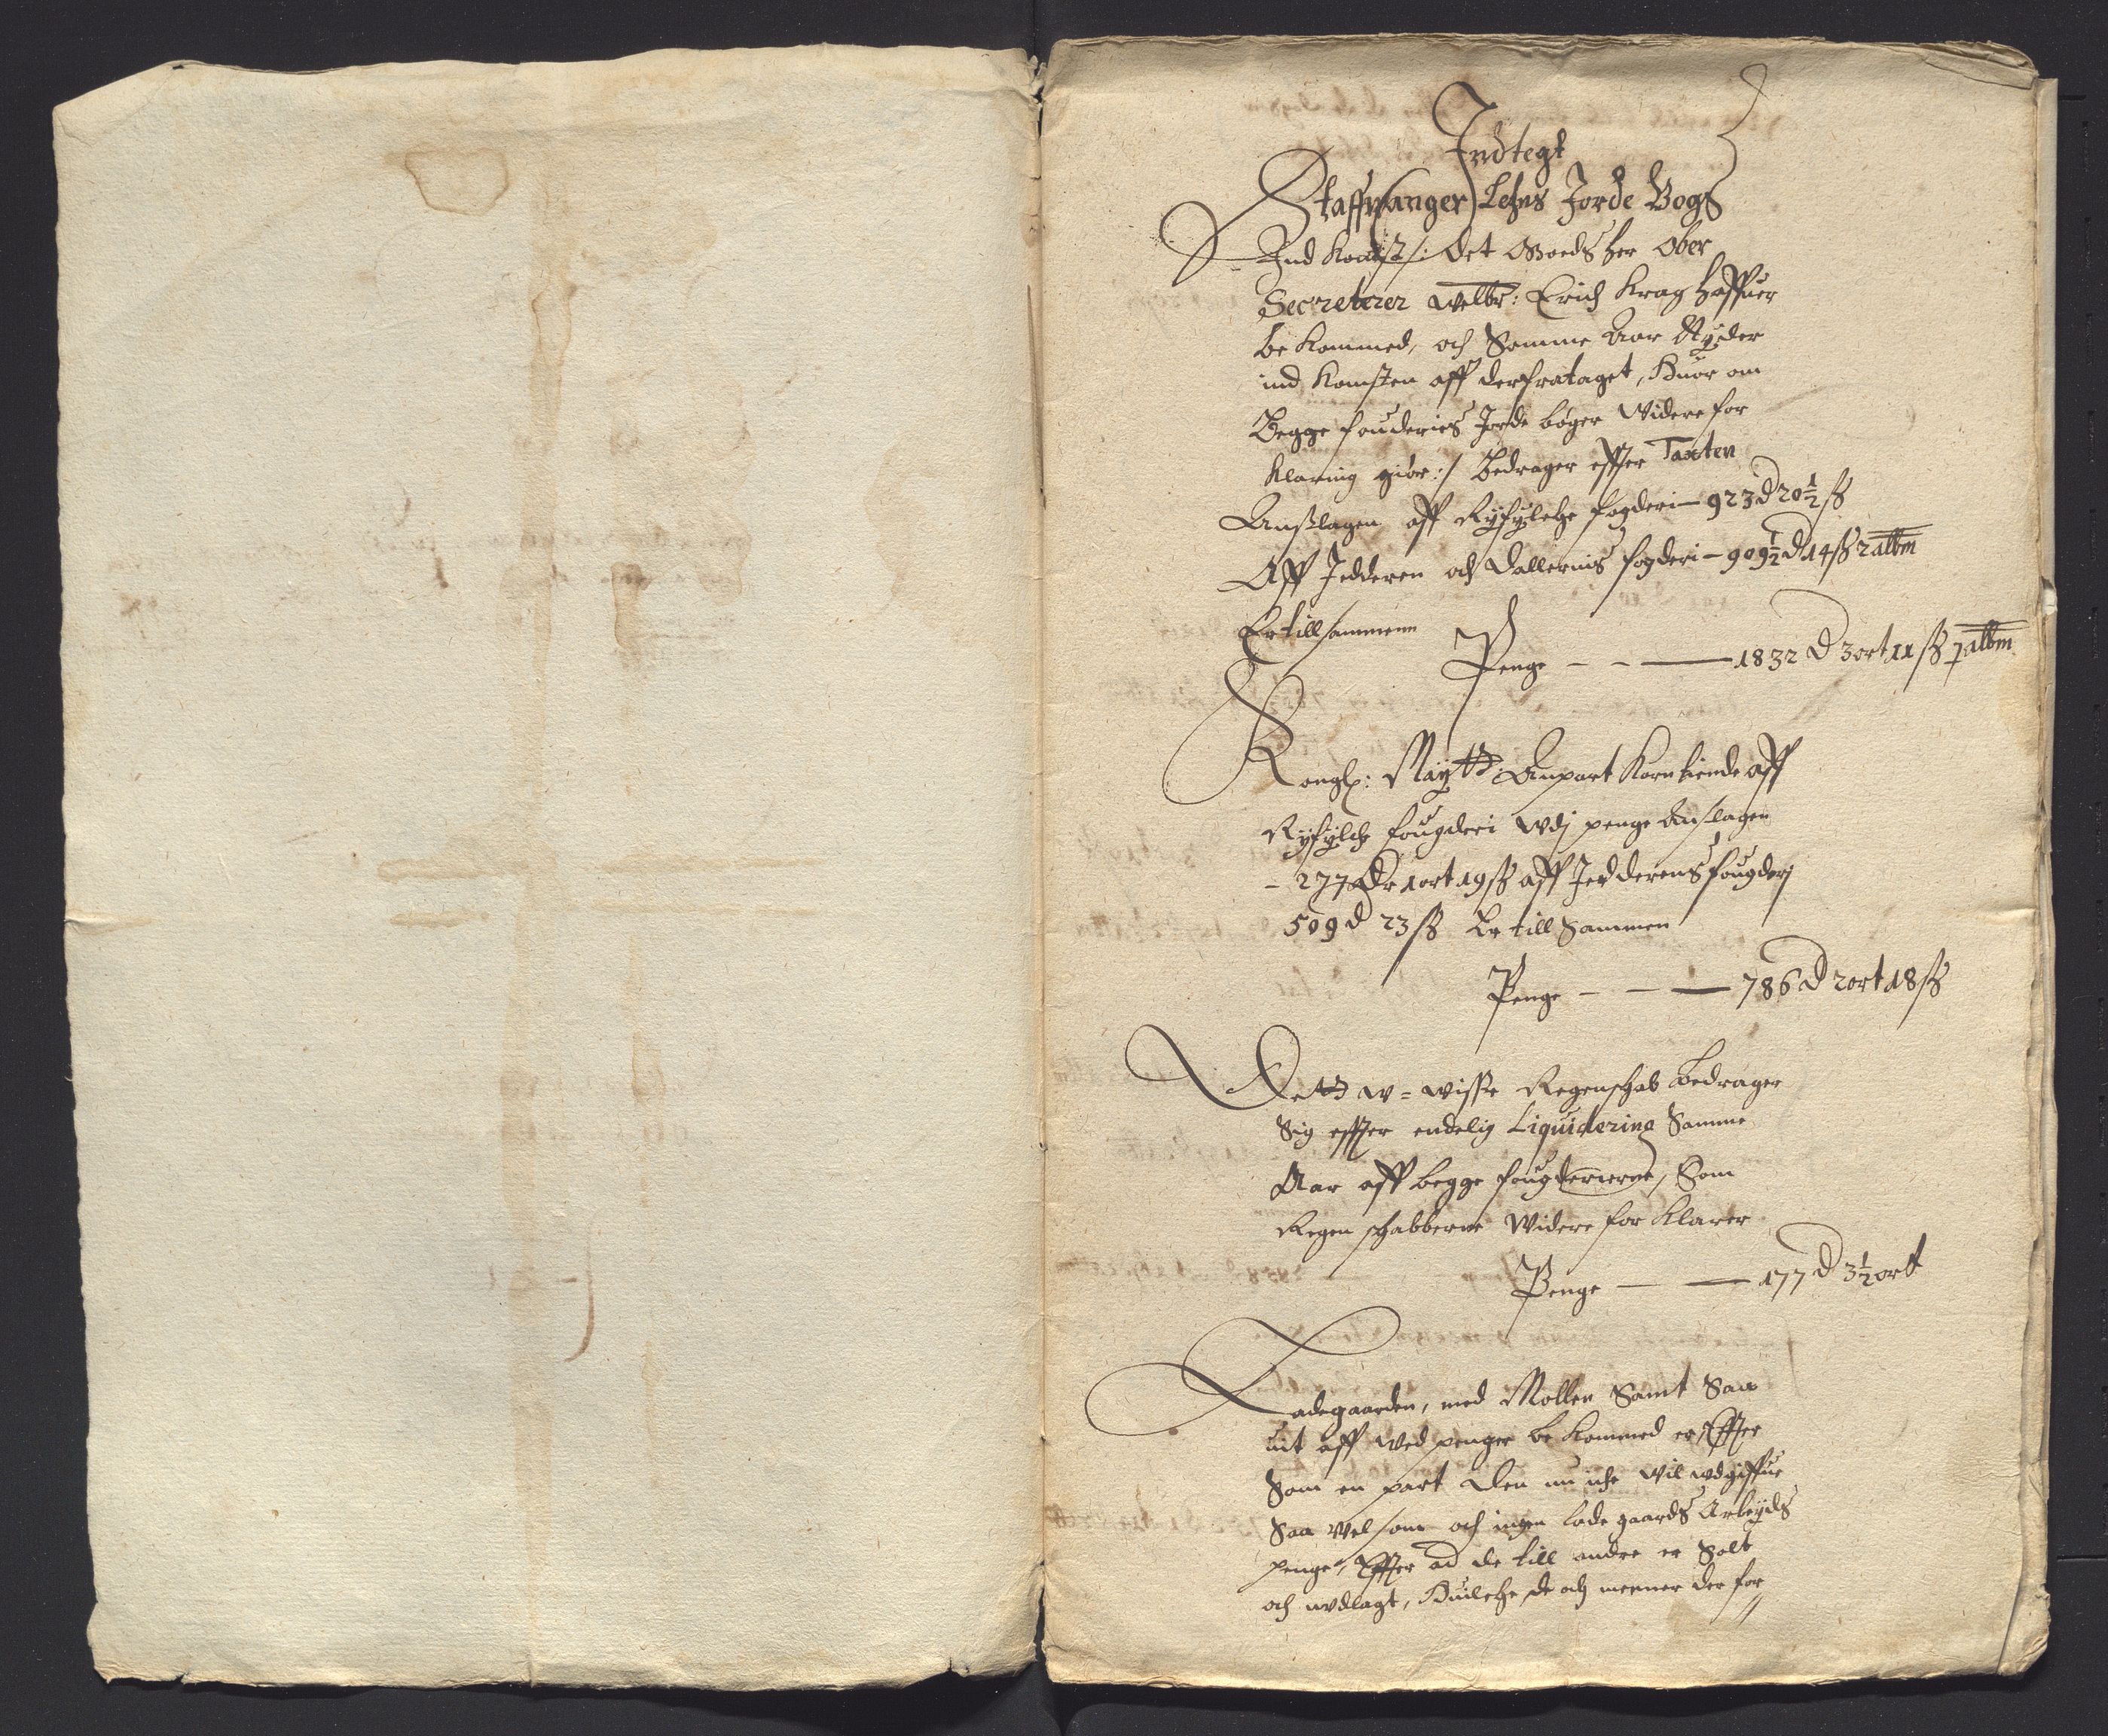 Indtegt
Staffvanger Lehns Jorde Bogs
Ind Komst /: det Goeds her Ober
Secreterer welbr: Erich Krag haffuer
be kommed, och Samme Aar Nyder
ind komsten aff derfrataget, Huor om
Begge fouderies Jorde bøger Widere for
klaring giør :/ Bedrager effter Taxten
Anslagen aff Ryfylche fogderi — 923 d 20½ ß
Aff Jedderen och Dallernis fogderi — 909½ d 14 ß 2 albm
Er till sammenn
Penge — — — 1832 d 3 ort 11 ß 2 albm
Kongl: Maytts: Anpart Korn tiende aff
Ryfylche fougderi Wdj penge Anslagen
- 277 dr 1 ort 19 ß aff Jedderens fougderj
509 d 23 ß Er till Sammen
Penge — — — 786 d 2 ort 18 ß
Dett w=wisse Regenschab bedrager
Sig effter endelig Liquidering Samme
Aar aff begge fougderierne, Som
Regen schabberne Widere for klarer
Penge — — 177 d 3½ ort
Ladegaarden, med Møllen Samt Saa
uit aff Wed penger be kommed er, Effter
Som en part den nu iche wil wdgiffue
Saa Wel som och ingen lade gaards Arbeyds
penge, Effter ad de till andre er Solt
och wdlagt, Huilche de och meener der for